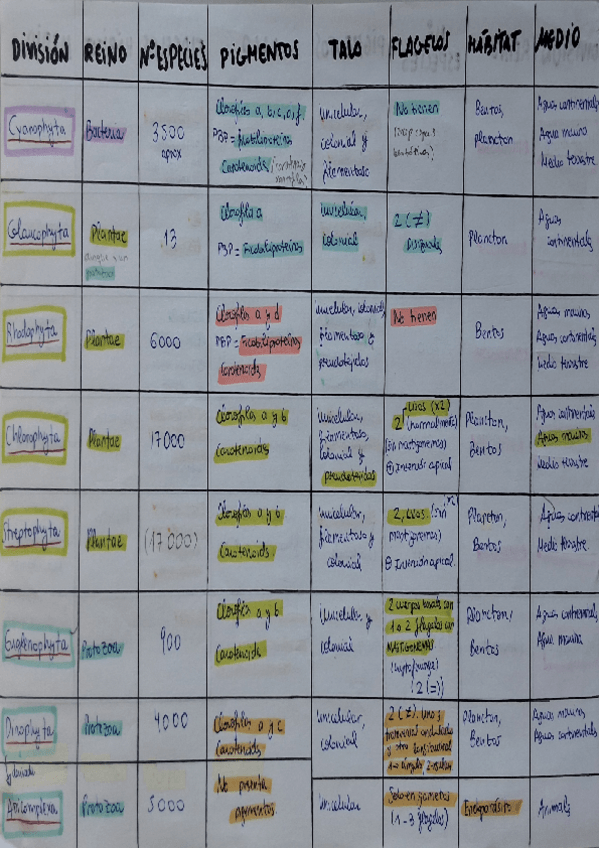 DIVISIÓN REINO Nº ESPECIES PIGMENTOS TALO FLAGELOS HÁBITAT MEDIO
Cyanophyta
Bacteria
3500
aprox
Clorofilas a, b, c, d, f
PBP = ficobiliproteínas
Carotenoids
Unicelular,
colonial y
filamentoso
No tienen
Bentos,
plancton
Aguas continentals
Agua marina
Medio terrestre
Glaucophyta
Plantae
13
Clorofila a
PBP = Ficobiliproteínas
Unicelular,
colonial
2 (≠)
Desiguals
Plancton
Aguas
continentals
Rhodophyta
Plantae
6000
Clorofilas a y d
PBP = Ficobiliproteínas
Carotenoids
Unicelular, colonial,
filamentoso y
pseudotejidos
No tienen
Bentos
Aguas marinas
Aguas continentals
Medio terrestre
Chlorophyta
Plantae
17000
Clorofilas a y b
Carotenoids
Unicelular,
filamentoso,
colonial y
pseudotejidos
2 Lisos (x2)
(normalmente)
(sin mastigonemas)
Inserción apical
Plancton,
Bentos
Aguas continentals
Aguas marinas
Medio terrestre
Streptophyta
Plantae
(17000)
Clorofilas a y b
Carotenoids
Unicelular,
filamentoso y
colonial
2, Lisos (sin
mastigonemas)
Inserción apical
Plancton,
Bentos
Aguas continentals
Medio terrestre
Euglenophyta
Protozoa
900
Clorofilas a y b
Carotenoids
Unicelular y
colonial
2 cuerpos basals con
1 o 2 flagelos con
MASTIGONEMAS
(2 (=))
Plancton,
Bentos
Aguas continentals
Agua marina
Dinophyta
Protozoa
4000
Clorofilas a y c
Carotenoids
Unicelular,
colonial
2 (≠). Uno
transversal ondulado
y otro longitudinal
Plancton,
Bentos
Aguas marinas
Aguas continentals
Apicomplexa
Protozoa
5000
No presenta
pigmentos
Unicelular
Solo en gametos
(1-3 flagelos)
Endoparásito
Animals